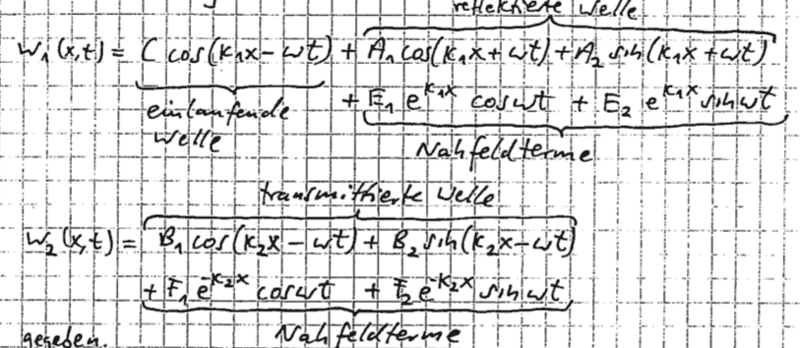 reflektierte Welle
w₁(x,t) = C cos(k₁x − ωt) + A₁ cos(k₁x + ωt) + A₂ sin(k₁x + ωt)
+ E₁ e^{k₁x} cos ωt + E₂ e^{k₁x} sin ωt
einlaufende
Welle
Nahfeldterme
transmittierte Welle
w₂(x,t) = B₁ cos(k₂x − ωt) + B₂ sin(k₂x − ωt)
+ F₁ e^{-k₂x} cos ωt + F₂ e^{-k₂x} sin ωt
Nahfeldterme
gegeben.